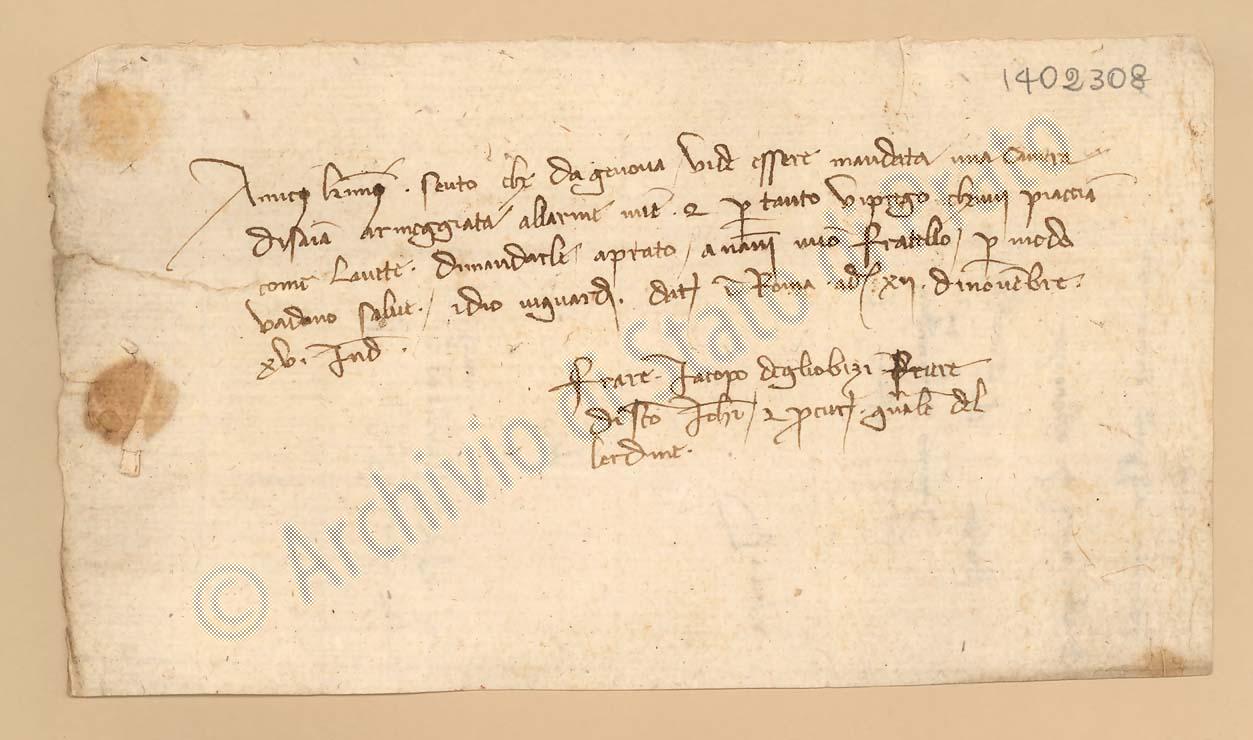 1402308
Amico k(arissi)mo. sento ch(e) da genova vi de essere mandata una camera
di saia armeggiata allarme mie. et p(er) tanto vi prego che vi piaccia
come lavete. di mandarle a prato / a nanni mio fratello / p(er) modo
vadano salve. / idio vi guardi. dat(a) i(n) Roma ad(i) xii. di novembre.
xv. Ind.
Frate. Jacopo degliobizi
di s(an)to Joh(ann)i / et g(e)n(er)ale del
lordine.
© Archivio di Stato di Prato